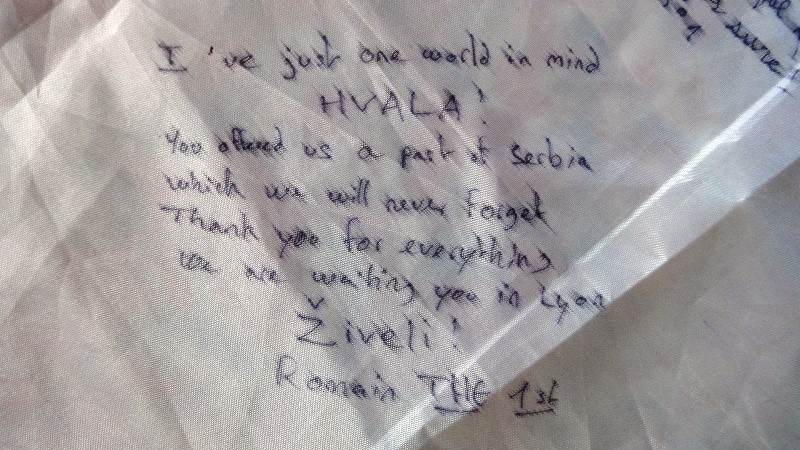 I've just one world in mind
HVALA!
You offered us a part of Serbia
which we will never forget
Thank you for everything
we are waiting you in Lyon
Živeli!
Romain THE 1st
sure!